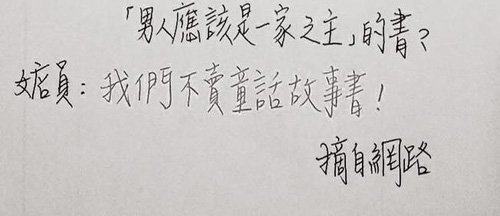 「男人應該是一家之主」的書?
女店員:我們不賣童話故事書!
摘自網路